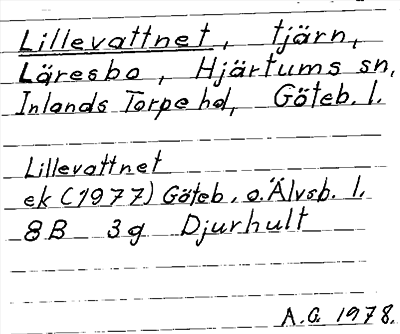 Lillevattnet, tjärn,
Läresbo, Hjärtums sn,
Inlands Torpe hd, Göteb. l.
Lillevattnet
ek (1977) Göteb. o. Älvsb. l.
8B 3g Djurhult
A.G. 1978.